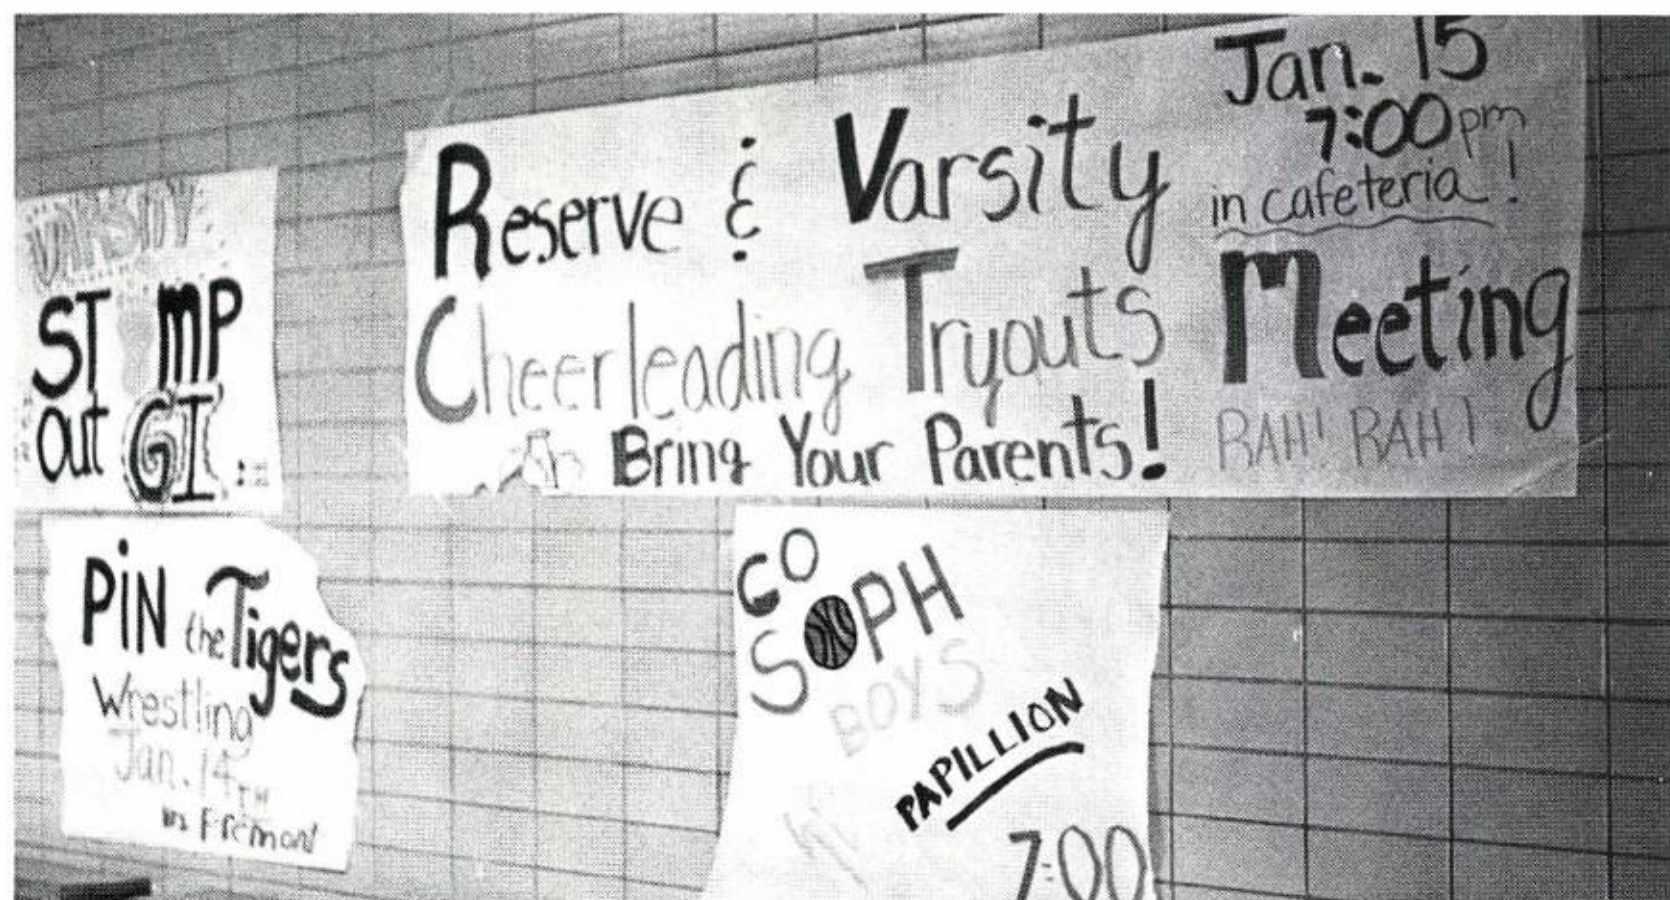 VARSITY
STOMP
out GI
Reserve & Varsity
Cheerleading Tryouts
Bring Your Parents!
Jan. 15
7:00 pm
in cafeteria!
Meeting
RAH! RAH!
PiN the Tigers
Wrestling
Jan. 14TH
in Fremont
GO
SOPH
BOYS
PAPILLION
7:00